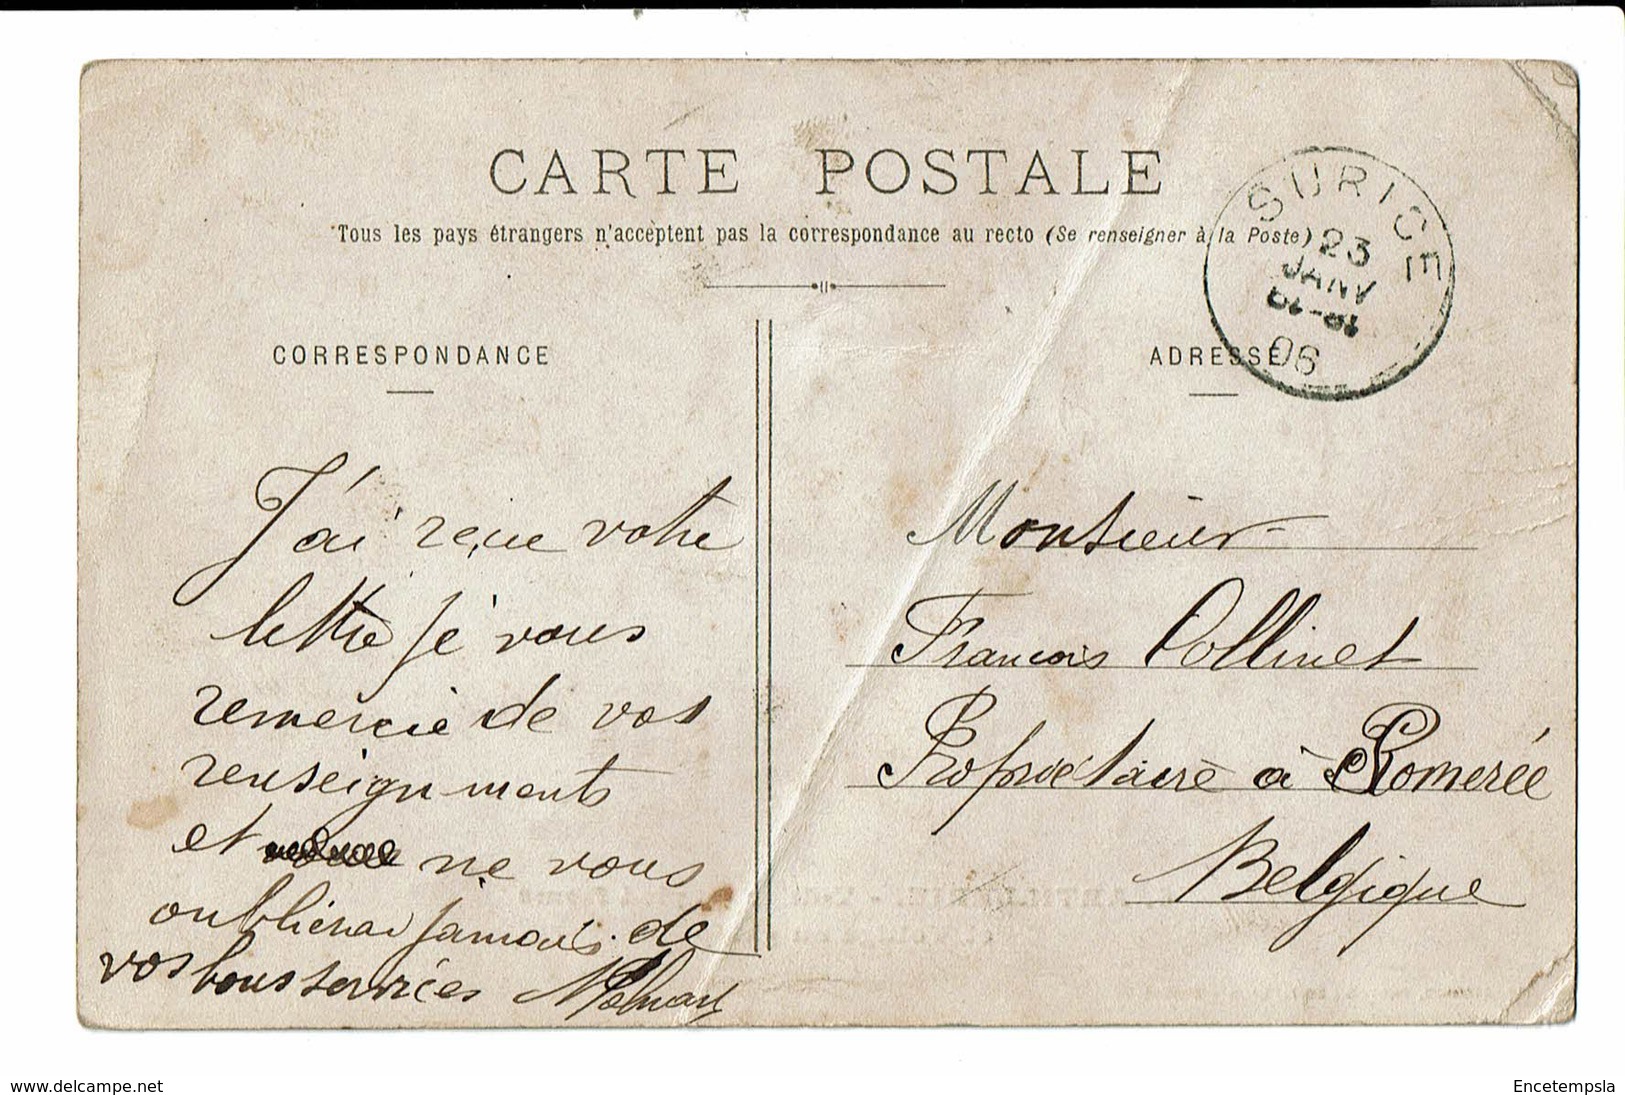 CARTE POSTALE
Tous les pays étrangers n'acceptent pas la correspondance au recto (Se renseigner à la Poste)
SURICE
23
JANV
06
CORRESPONDANCE
ADRESSE
J'ai reçue votre
lettre je vous
remercie de vos
renseignments
et ne vous
oublierai jamais de
vos bons services
Monsieur
Francois Collinet
Propriétaire à Romerée
Belgique
www.delcampe.net
Encetempsla